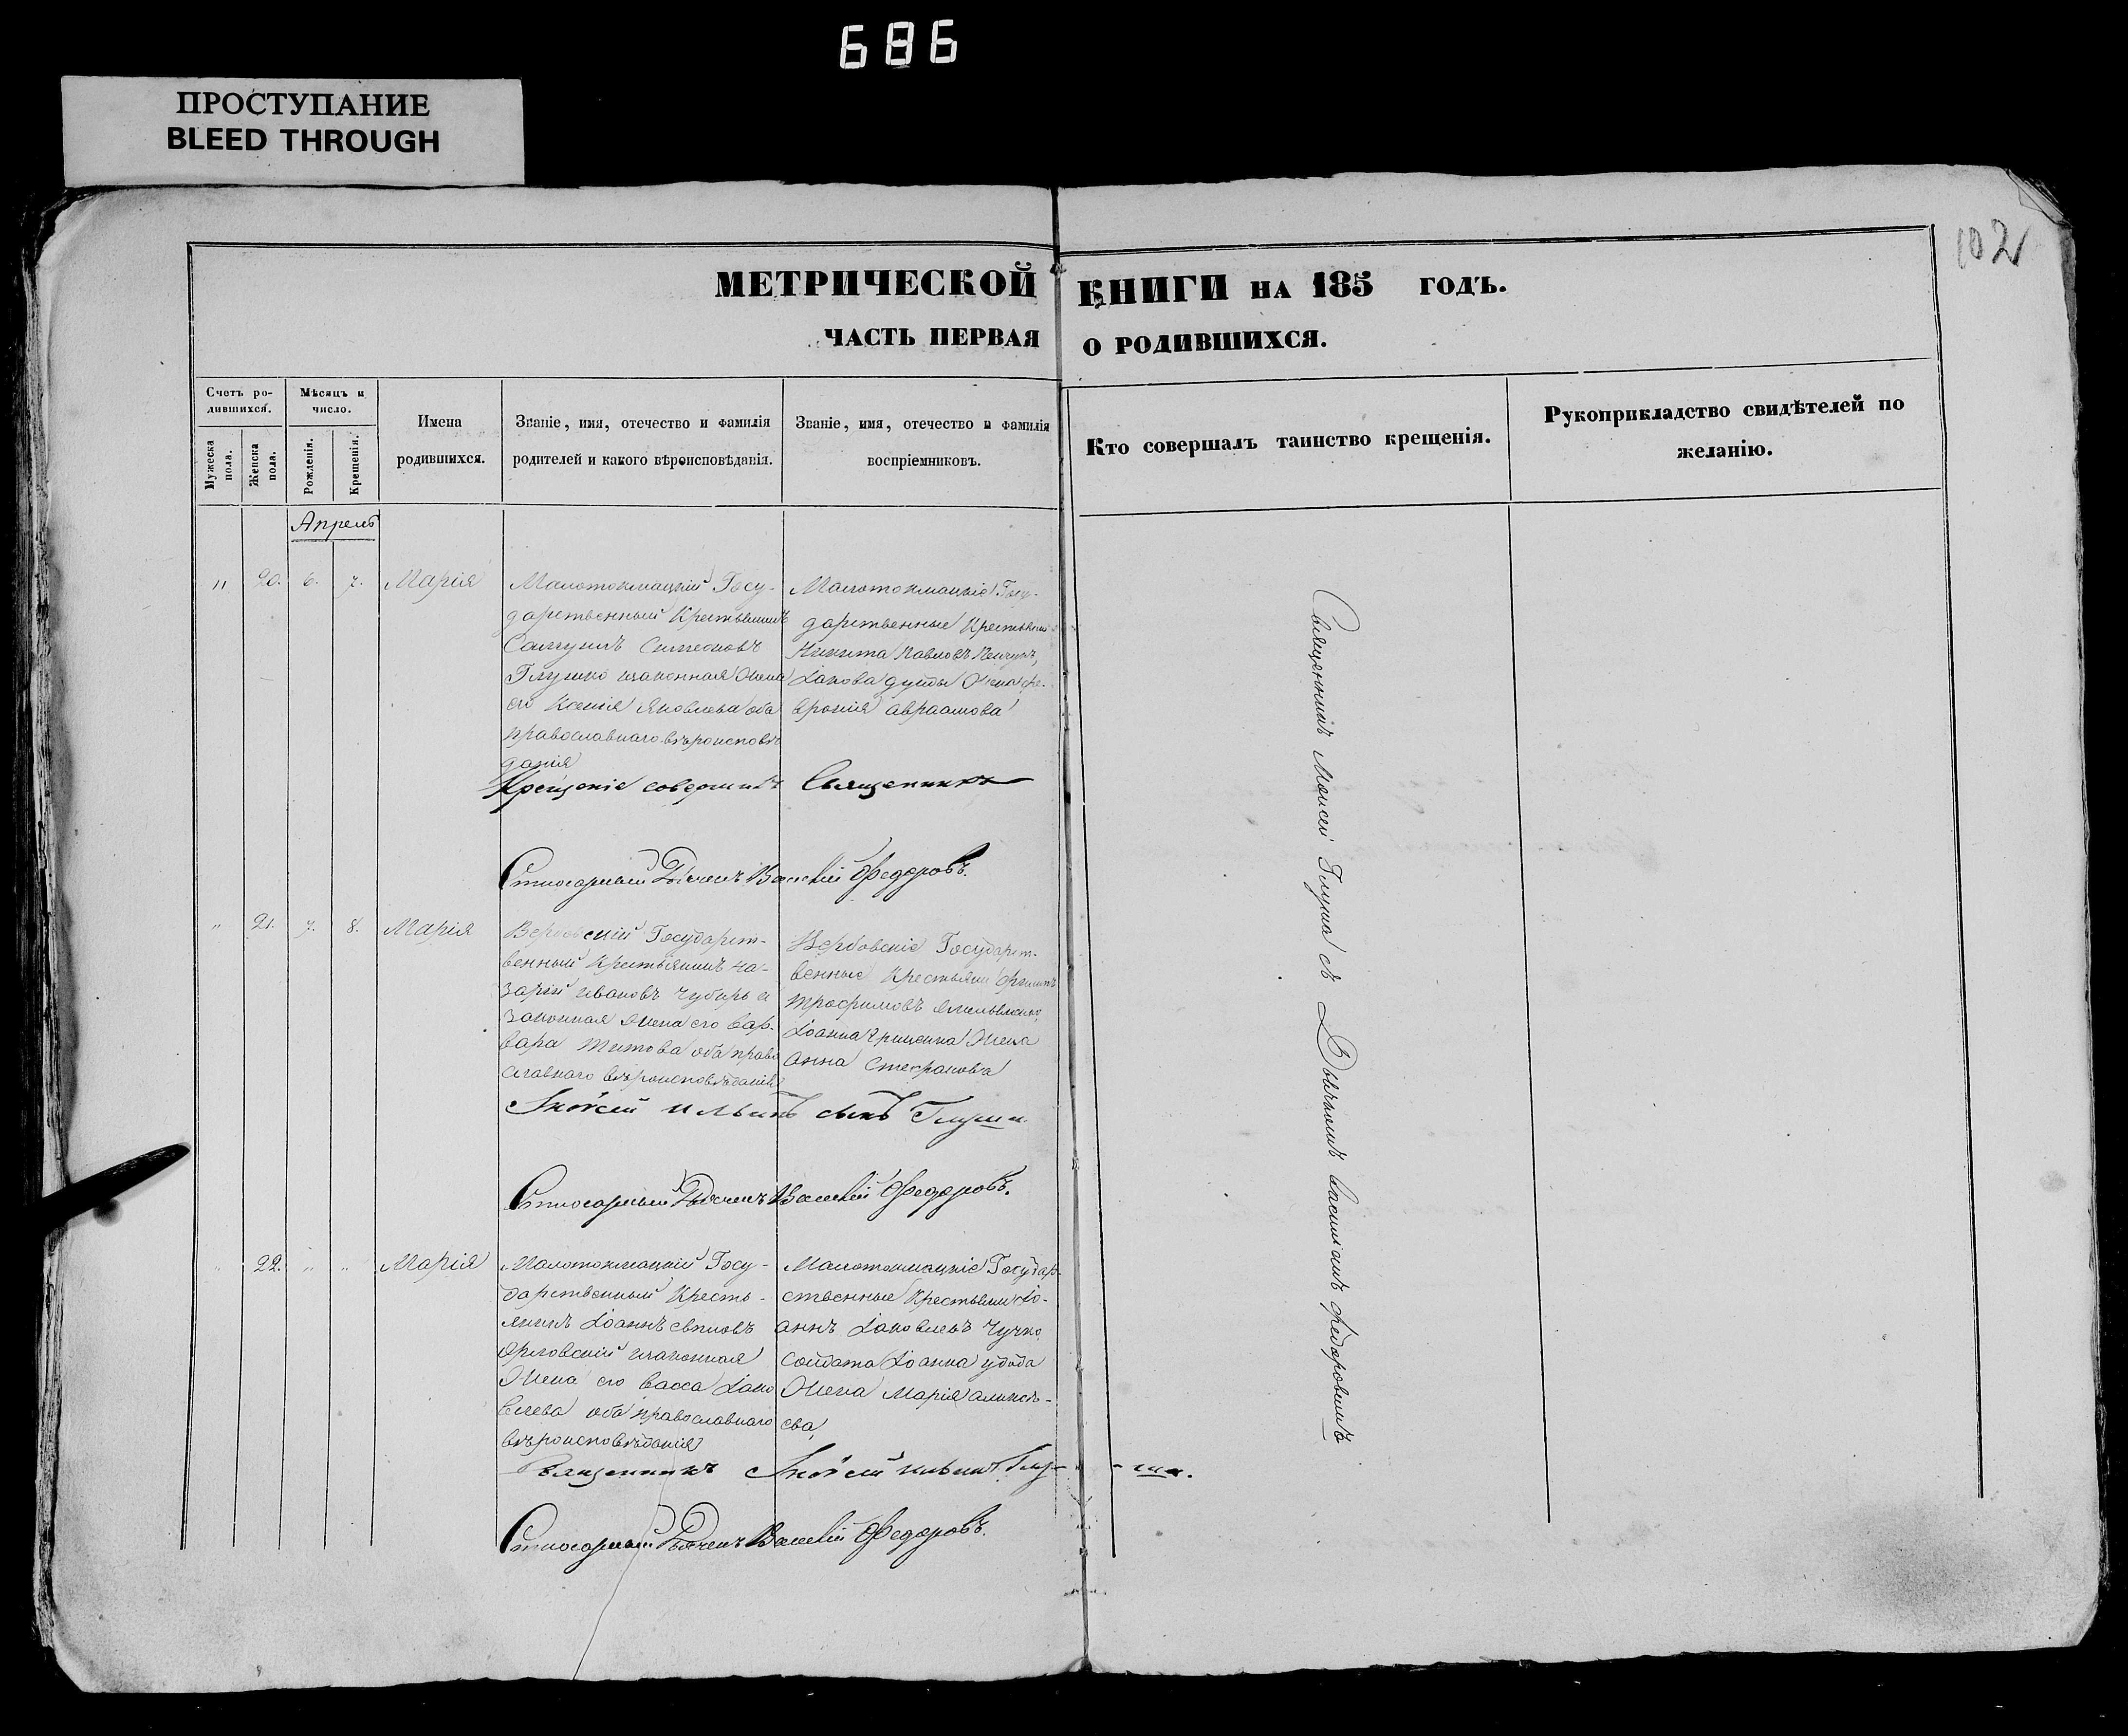 686
ПРОСТУПАНИЕ
BLEED THROUGH
102
МЕТРИЧЕСКОЙ КНИГИ НА 185 ГОДЪ.
ЧАСТЬ ПЕРВАЯ О РОДИВШИХСЯ.
Счетъ ро-
дившихся.
Мужеска пола.
Женска пола.
Мѣсяцъ и
число.
Рожденія.
Крещенія.
Имена
родившихся.
Званіе, имя, отечество и фамилія
родителей и какого вѣроисповѣданія.
Званіе, имя, отечество и фамилія
воспріемниковъ.
Кто совершалъ таинство крещенія.
Рукоприкладство свидѣтелей по
желанію.
Апрель
" 20. 6. 7. Марія
Малотокмацкій Госу-
дарственный Крестьянинъ
Самуилъ Симеоновъ
Глушко изаконная Жена
его Ксенія Яковлева оба
православнаго вѣроисповѣ
данія
Малотокмацкіе Госу-
дарственные Крестьяни
Никита Павловъ
Іакова Жена Фе-
вронія авраамова
Крещеніе совершилъ Священникъ
Стихарный Дьячекъ Василій Федоровъ.
" 21. 7. 8. Марія
Вербовскій Государст-
венный Крестьянинъ На-
зарій Ивановъ Чубирь и
законная Жена его Вар-
вара Титова оба право
славнаго вѣроисповѣданія
Вербовскіе Государст-
венные Крестьяни
Трофимовъ
Іоанна Гриценка Жена
Анна Стефанова
Моѵсей Ильинъ сынъ Глуша
Стихарный Дьячекъ Василій Федоровъ.
" 22. " " Марія
Малотокмацкій Госу-
дарственный Кресть-
янинъ Іоаннъ
Орловскій изаконная
Жена его Васса Іако
влева оба православнаго
вѣроисповѣданія
Малотокмацкіе Государ-
ственные Крестьяни Іо-
аннъ Іаковлевъ Чучко,
Солдата Іоанна Удода
Жена Марія Алексѣ-
ева,
Священникъ Моѵсей Ильинъ Глу-
-ша.
Стихарный Дьячекъ Василій Федоровъ.
Священникъ Моисей Глуша съ Дьячкомъ Василіемъ Федоровимъ